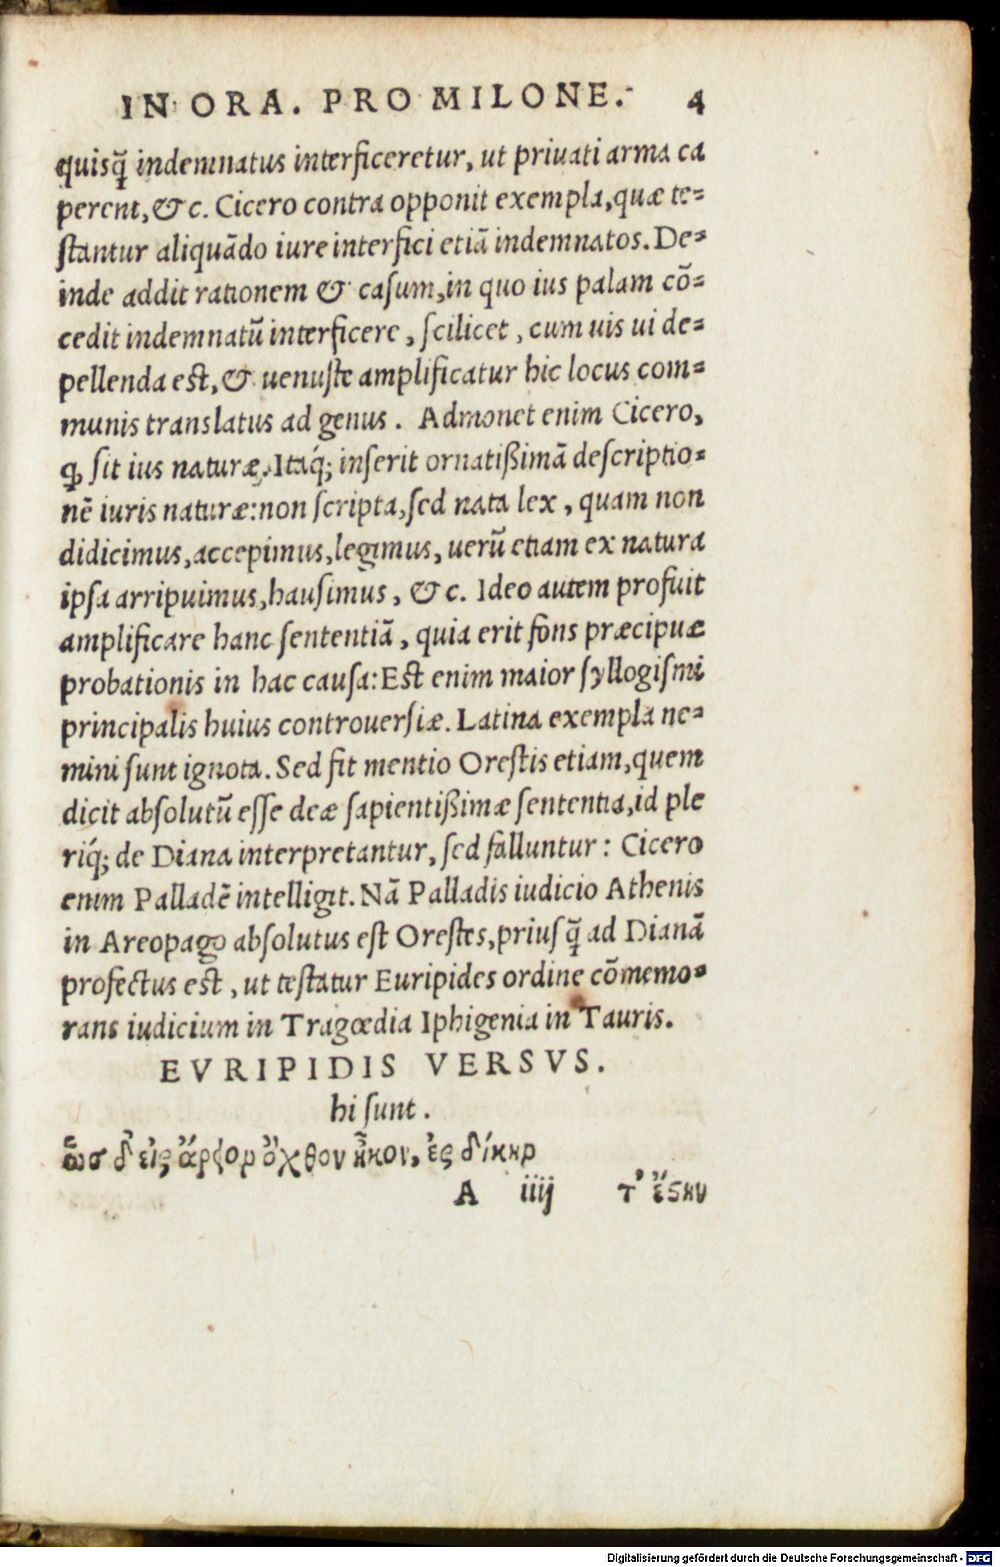 IN ORA. PRO MILONE. 4
quisq̃ indemnatus interficeretur, ut priuati arma ca
perent, &c. Cicero contra opponit exempla, quæ te⸗
stantur aliquãdo iure interfici etiã indemnatos. De⸗
inde addit rationem & casum, in quo ius palam cõ⸗
cedit indemnatũ interficere, scilicet, cum uis ui de⸗
pellenda est, & uenuste amplificatur hic locus com⸗
munis translatus ad genus. Admonet enim Cicero,
ꝙ sit ius naturæ. Itaq́; inserit ornatißimã descriptio⸗
nẽ iuris naturæ: non scripta, sed nata lex, quam non
didicimus, accepimus, legimus, uerũ etiam ex natura
ipsa arripuimus, hausimus, &c. Ideo autem profuit
amplificare hanc sententiã, quia erit fons præcipuæ
probationis in hac causa: Est enim maior syllogismi
principalis huius controuersiæ. Latina exempla ne⸗
mini sunt ignota. Sed fit mentio Orestis etiam, quem
dicit absolutũ esse deæ sapientißimæ sententia, id ple
riq́; de Diana interpretantur, sed falluntur: Cicero
enim Palladẽ intelligit. Nã Palladis iudicio Athenis
in Areopago absolutus est Orestes, priusq̃ ad Dianã
profectus est, ut testatur Euripides ordine cõmemo⸗
rans iudicium in Tragœdia Iphigenia in Tauris.
EVRIPIDIS VERSVS.
hi sunt.
ὣσ δ' εἰς ἄρειον ὄχθον ἧκον, ἐς δίκην
A iiij τ' ἔστην